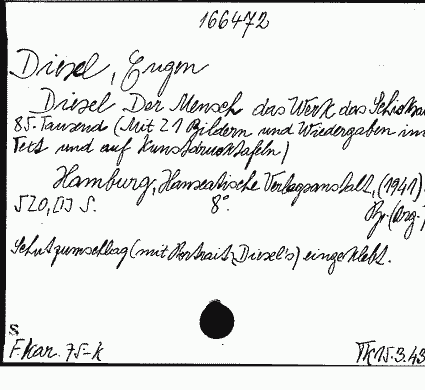 166472
Diesel, Eugen
Diesel Der Mensch das Werk das Schicksa
85. Tausend (Mit 21 Bildern und Wiedergaben im
Text und auf Kunstdrucktafeln)
Hamburg, Hanseatische Verlagsanstalt, (1941).
520, [1] S. 8°.
(Orig-
Schutzumschlag (mit Portrait Diesel's) eingeklebt.
S
F. Kar. 75-k
15.3.43